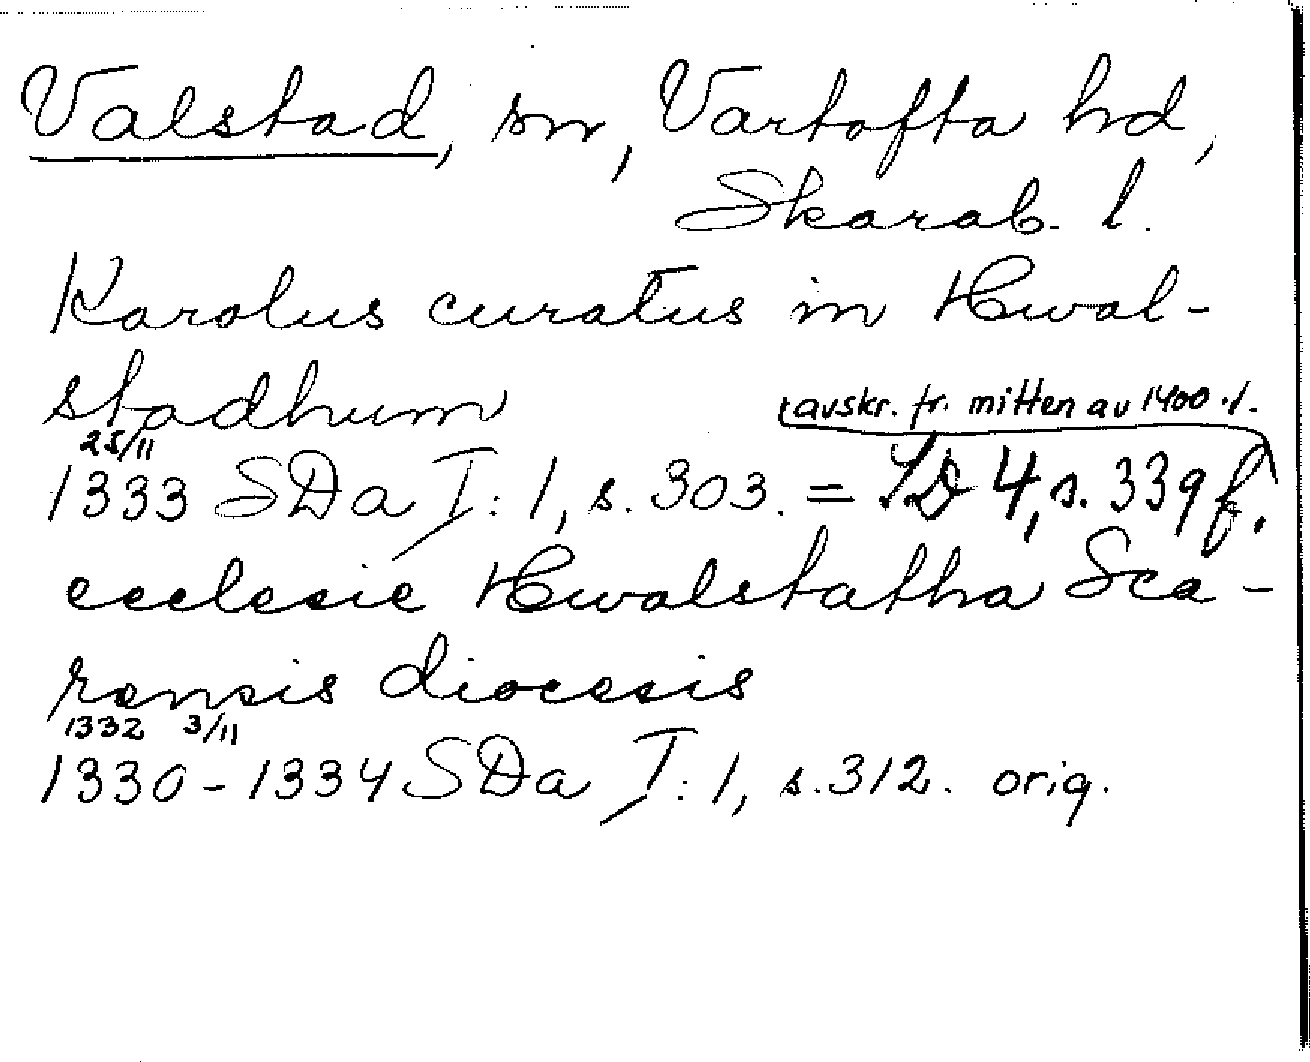 Valstad, sn, Vartofta hd,
Skarab. l.
Karolus curatus in Hwal-
stadhum
avskr. fr. mitten av 1400.t.
25/11
1333 SDa I:1, s. 303. = SD 4, s. 339 f.
ecclesie Hwalstatha Sca-
rensis diocesis
1332 3/11
1330-1334 SDa I:1, s. 312. orig.